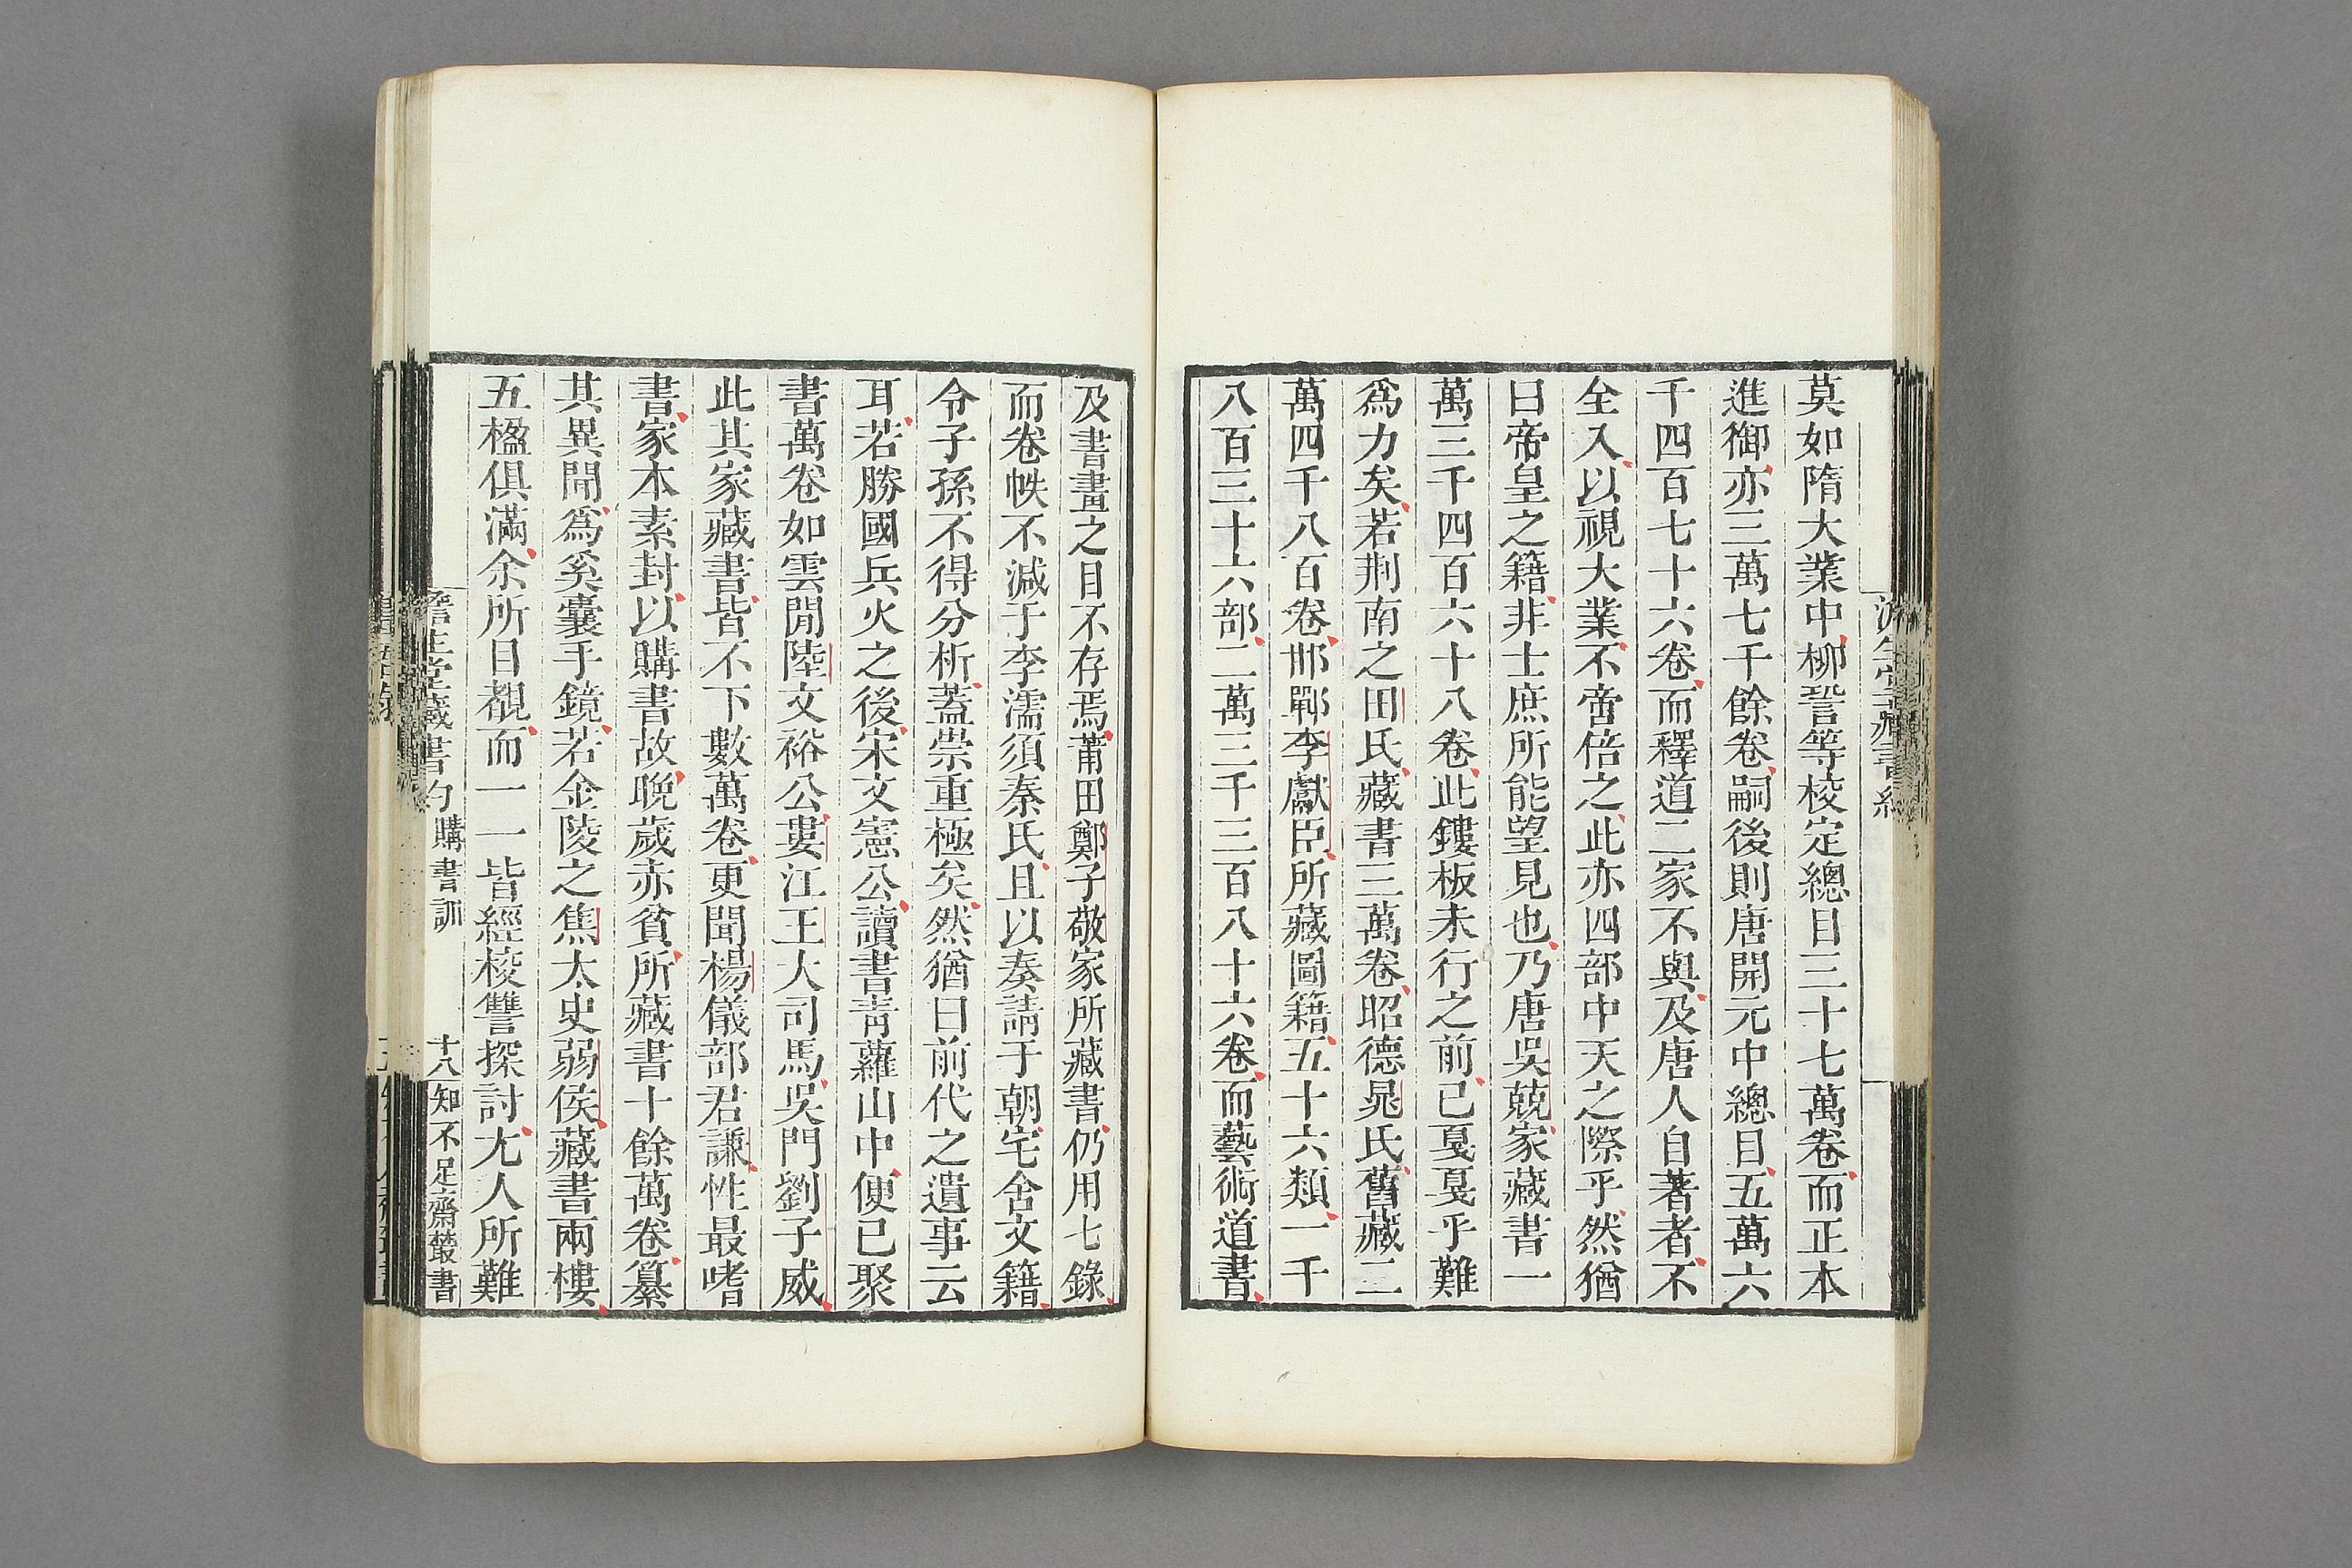 莫如隋大業中柳䛒等校定總目三十七萬卷而正本
進御亦三萬七千餘卷嗣後則唐開元中總目五萬六
千四百七十六卷而釋道二家不與及唐人自著者不
全入以視大業不啻倍之此亦四部中天之際乎然猶
曰帝皇之籍非士庶所能望見也乃唐吳兢家藏書一
萬三千四百六十八卷此鏤板未行之前已戛戛乎難
爲力矣若荆南之田氏藏書三萬卷昭德晁氏舊藏二
萬四千八百卷邯鄲李獻臣所藏圖籍五十六類一千
八百三十六部二萬三千三百八十六卷而藝術道書
及書畫之目不存焉莆田鄭子敬家所藏書仍用七錄
而卷帙不減于李濡須秦氏且以奏請于朝宅舍文籍
令子孫不得分析蓋崇重極矣然猶曰前代之遺事云
耳若勝國兵火之後宋文憲公讀書青蘿山中便已聚
書萬卷如雲閒陸文裕公婁江王大司馬吳門劉子威
此其家藏書皆不下數萬卷更聞楊儀部君謙性最嗜
書家本素封以購書故晚歲亦貧所藏書十餘萬卷纂
其異聞爲奚囊手鏡若金陵之焦太史弱侯藏書兩樓
五楹俱滿余所目覩而一一皆經校讐探討尤人所難
澹生堂藏書約 購書訓 十八 知不足齋叢書